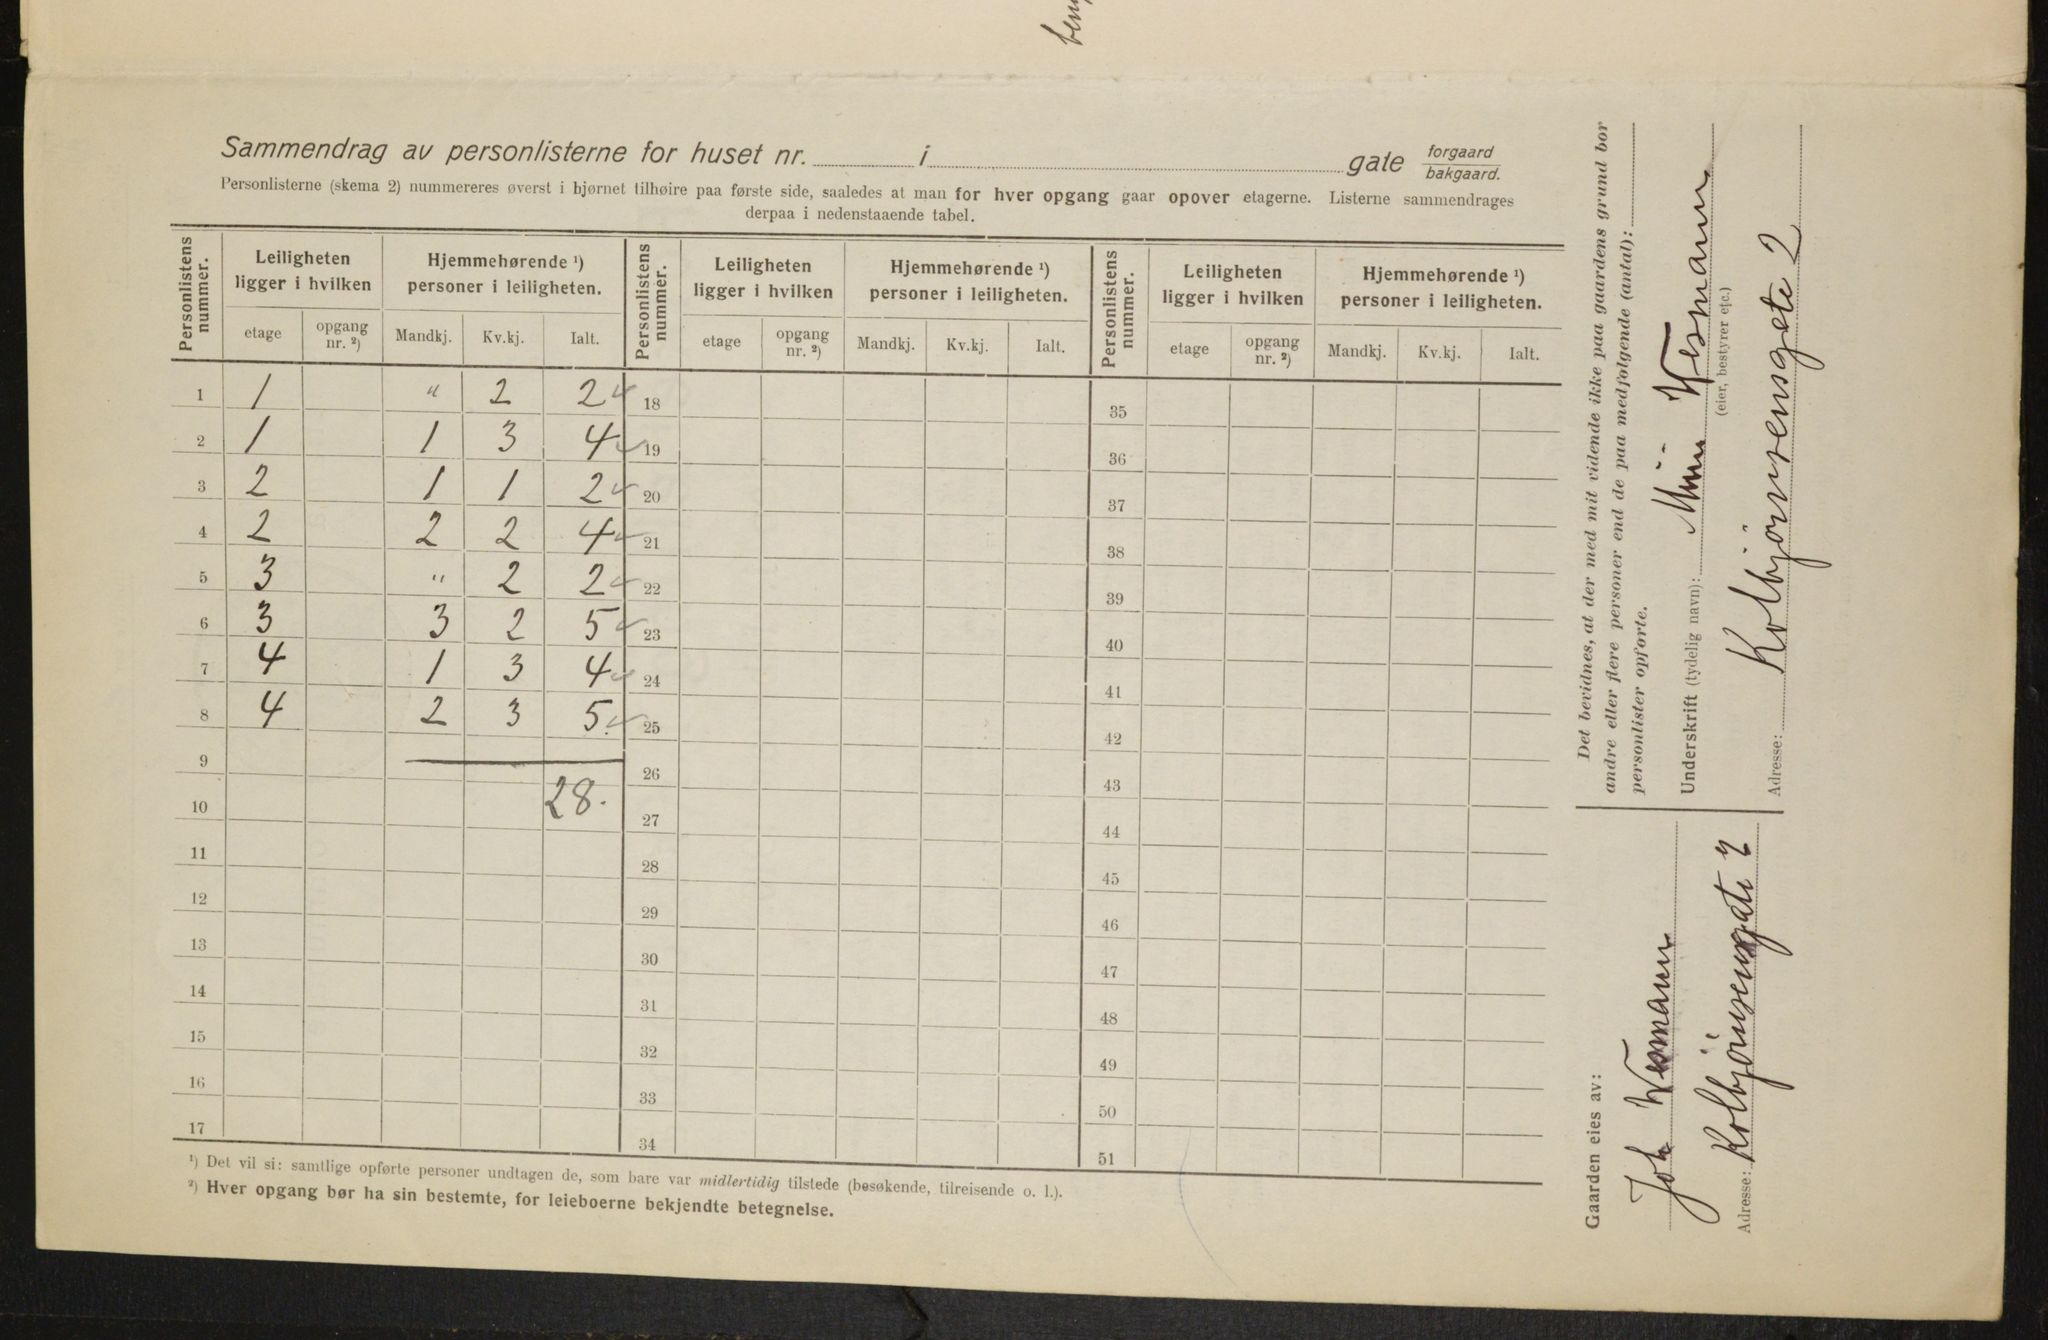 Sammendrag av personlisterne for huset nr. i gate forgaard bakgaard.
Personlisterne (skema 2) nummereres øverst i hjørnet tilhøire paa første side, saaledes at man for hver opgang gaar opover etagerne. Listerne sammendrages
derpaa i nedenstaaende tabel.
Personlistens nummer. Leiligheten ligger i hvilken Hjemmehørende ¹) personer i leiligheten. Personlistens nummer. Leiligheten ligger i hvilken Hjemmehørende ¹) personer i leiligheten. Personlistens nummer. Leiligheten ligger i hvilken Hjemmehørende ¹) personer i leiligheten.
etage opgang nr. ²) Mandkj. Kv.kj. Ialt. etage opgang nr. ²) Mandkj. Kv.kj. Ialt. etage opgang nr. ²) Mandkj. Kv.kj. Ialt.
1 1 " 2 2 18 35
2 1 1 3 4 19 36
3 2 1 1 2 20 37
4 2 2 2 4 21 38
5 3 " 2 2 22 39
6 3 3 2 5 23 40
7 4 1 3 4 24 41
8 4 2 3 5. 25 42
9 26 43
10 28. 27 44
11 28 45
12 29 46
13 30 47
14 31 48
15 32 49
16 33 50
17 34 51
¹) Det vil si: samtlige opførte personer undtagen de, som bare var midlertidig tilstede (besøkende, tilreisende o. l.).
²) Hver opgang bør ha sin bestemte, for leieboerne bekjendte betegnelse.
Det bevidnes, at der med mit vidende ikke paa gaardens grund bor
andre eller flere personer end de paa medfølgende (antal):
personlister opførte.
Underskrift (tydelig navn): Wesmann
(eier, bestyrer etc.)
Adresse: Kolbjörnsensgate 2
Gaarden eies av:
Joh Wesmann
Adresse: Kolbjörnsensgate 2